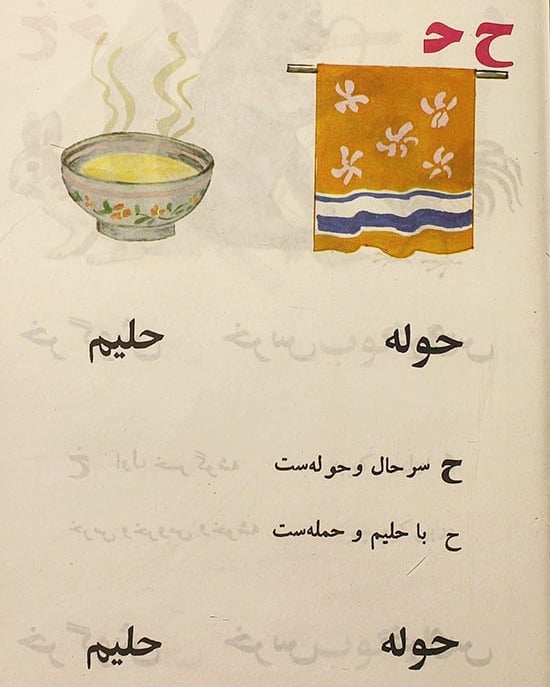 ح حـ
حوله حلیم
ح سر حال و حوله‌ست
ح با حلیم و حمله‌ست
حوله حلیم